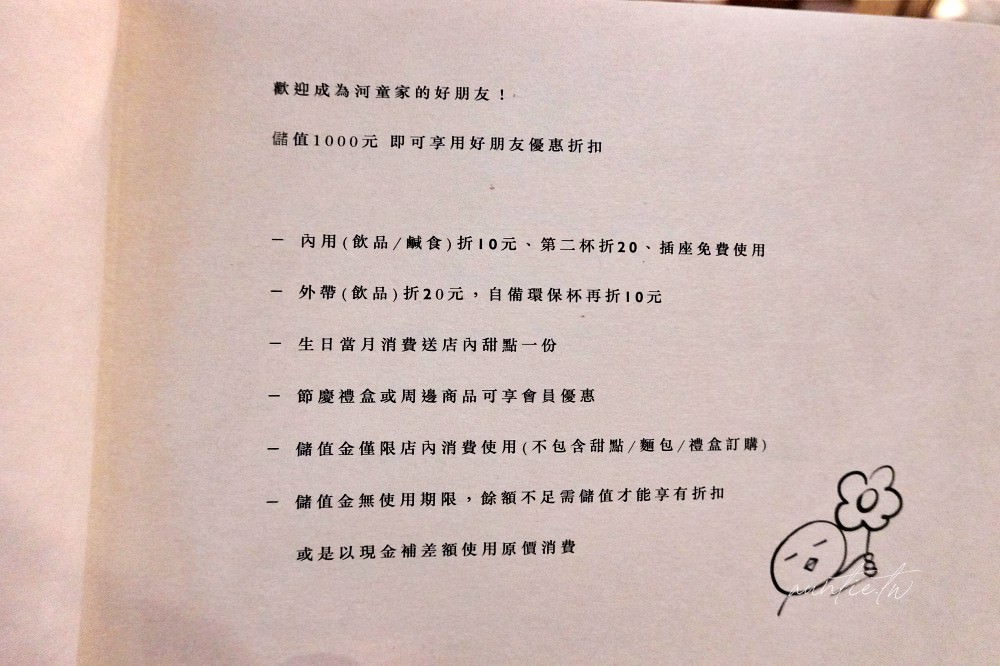 歡迎成為河童家的好朋友！
儲值1000元 即可享用好朋友優惠折扣
— 內用(飲品/鹹食)折10元、第二杯折20、插座免費使用
— 外帶(飲品)折20元，自備環保杯再折10元
— 生日當月消費送店內甜點一份
— 節慶禮盒或周邊商品可享會員優惠
— 儲值金僅限店內消費使用(不包含甜點/麵包/禮盒訂購)
— 儲值金無使用期限，餘額不足需儲值才能享有折扣
或是以現金補差額使用原價消費